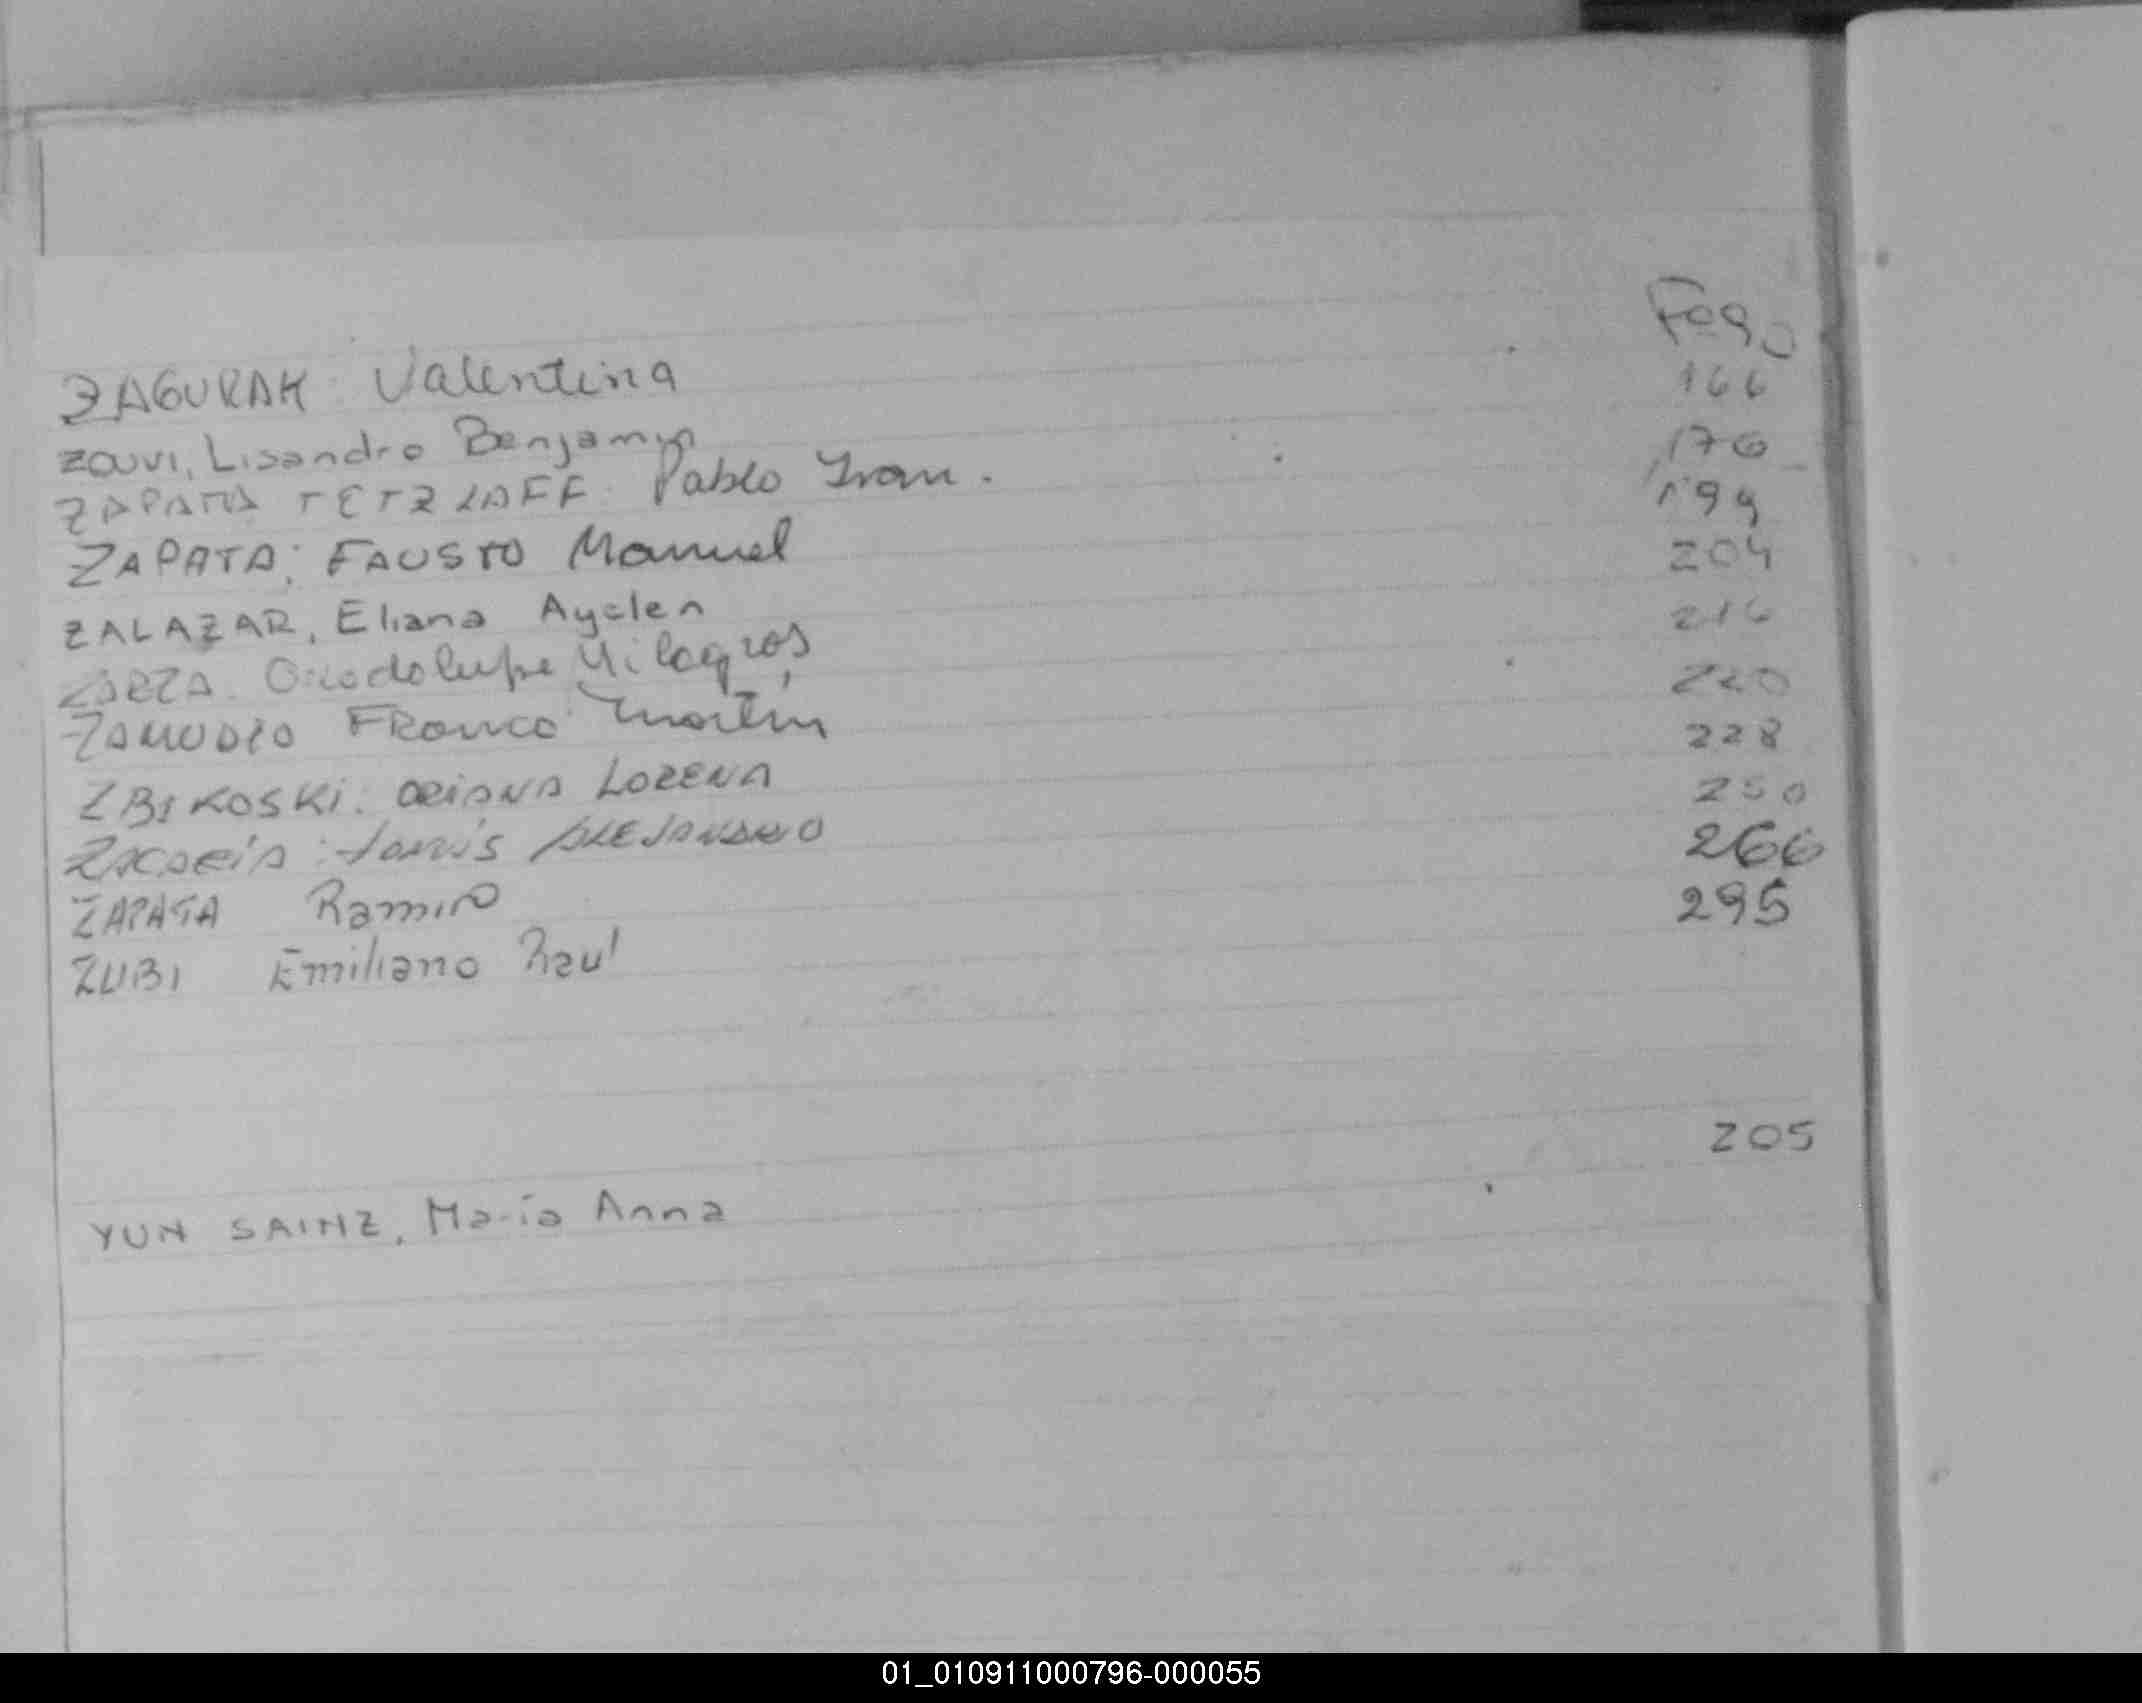 ZAGURAK Valentina Fo 90
ZOUVI, Lisandro Benjamin 166
ZAPATA TETZLAFF. Pablo Ivan. 176
ZAPATA; FAUSTO Manuel 199
ZALAZAR, Eliana Ayelen 204
ZARZA. Guadalupe Milagros 216
ZAMUDIO FRanco Martin 220
ZBIKOSKI. ORIANA LORENA 228
ZACARÍA: Tomás ALEJANDRO 250
ZAPATA Ramiro 266
ZUBI Emiliano Raul 295
YUN SAINZ, María Anna 205
01_010911000796-000055